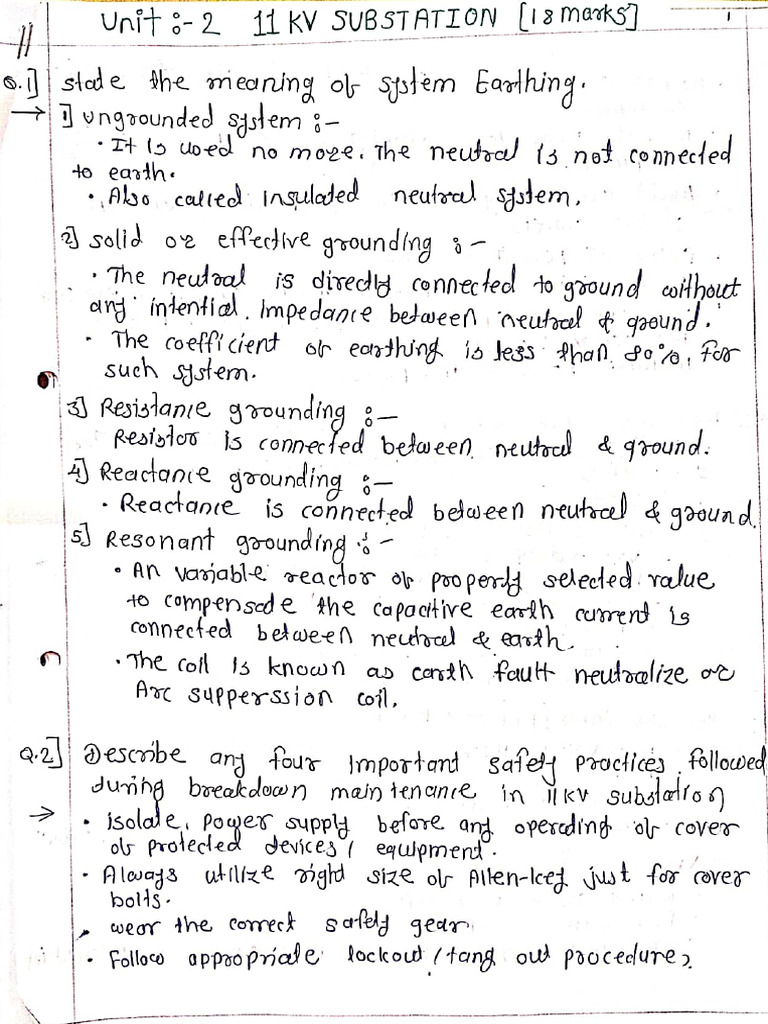 Unit :- 2 11 KV SUBSTATION [18 marks]
1
11
Q.1] state the meaning of system Earthing.
→ 1] ungrounded system :-
• It is used no more. The neutral is not connected
to earth.
• Also called insulated neutral system.
2] solid or effective grounding :-
• The neutral is directly connected to ground without
any intential impedance between neutral & ground.
• The coefficient of earthing is less than 80%. for
such system.
3] Resistance grounding :-
Resistor is connected between neutral & ground.
4] Reactance grounding :-
• Reactance is connected between neutral & ground.
5] Resonant grounding :-
• An variable reactor of properly selected value
to compensate the capacitive earth current is
connected between neutral & earth.
• The coil is known as earth fault neutralize or
Arc supperssion coil.
Q.2] Describe any four important safety practices followed
during breakdown maintenance in 11kv substation
→ • isolate power supply before any operating of cover
of protected devices / equipment.
• Always utilize right size of Allen-key just for cover
bolts.
• wear the correct safety gear
• Follow appropriate lockout / tang out procedures